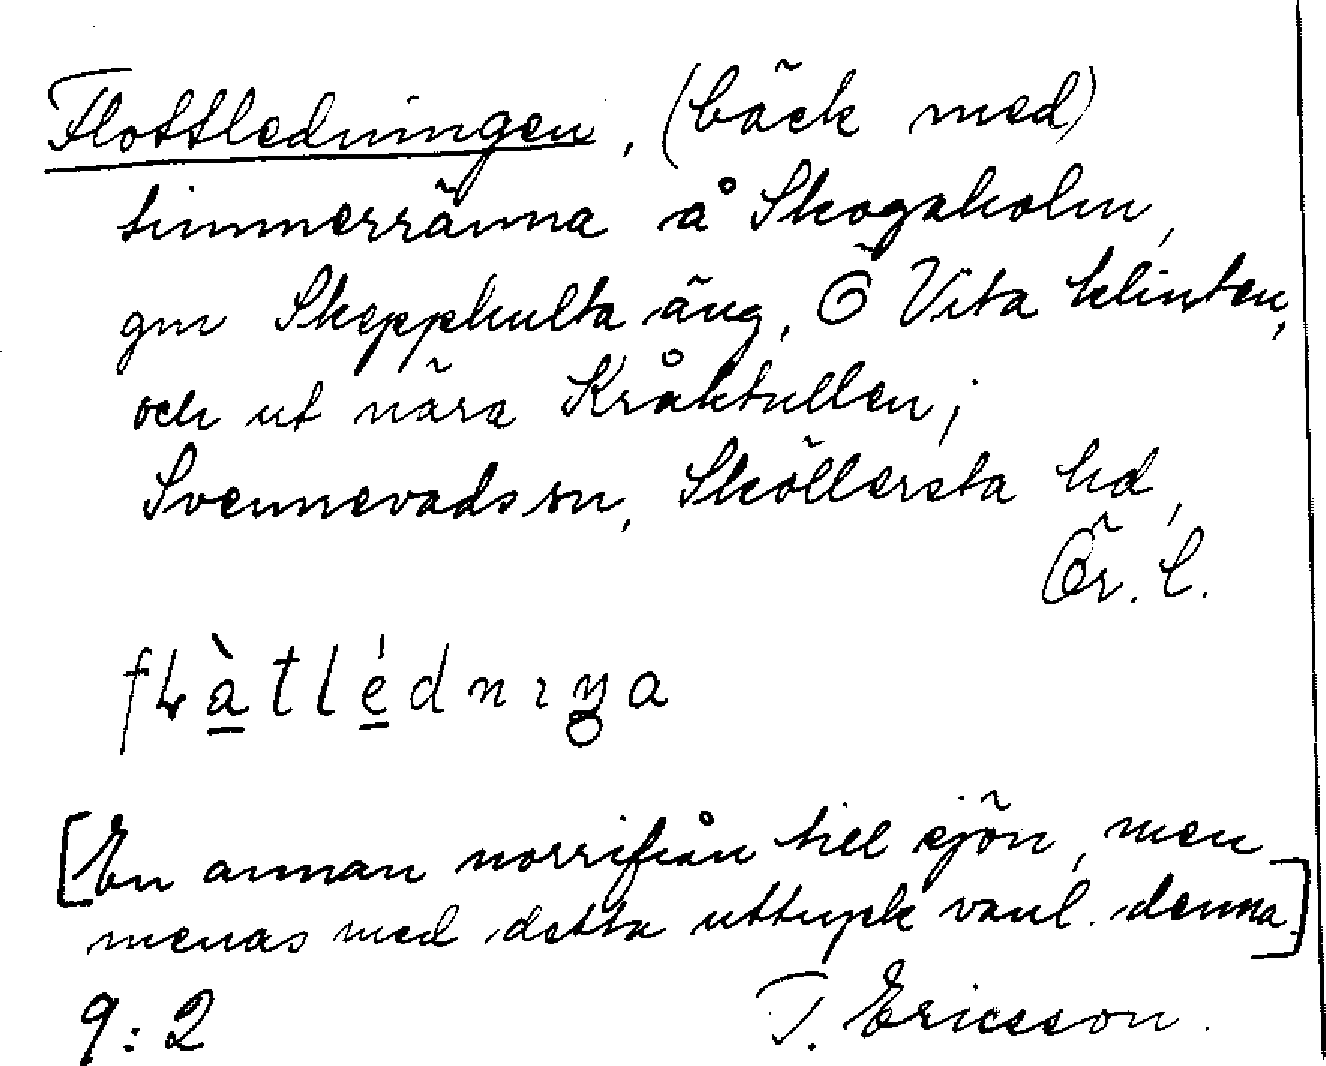 Flottledningen, (bäck med)
timmerränna å Skogaholm,
gm Skepphulta äng, Ö Vita klinten,
och ut nära Kråktullen;
Svennevads sn, Sköllersta hd,
Ör. l.
[En annan norrifrån till sjön, men
menas med detta uttryck vanl. denna.]
9:2 T. Ericsson.